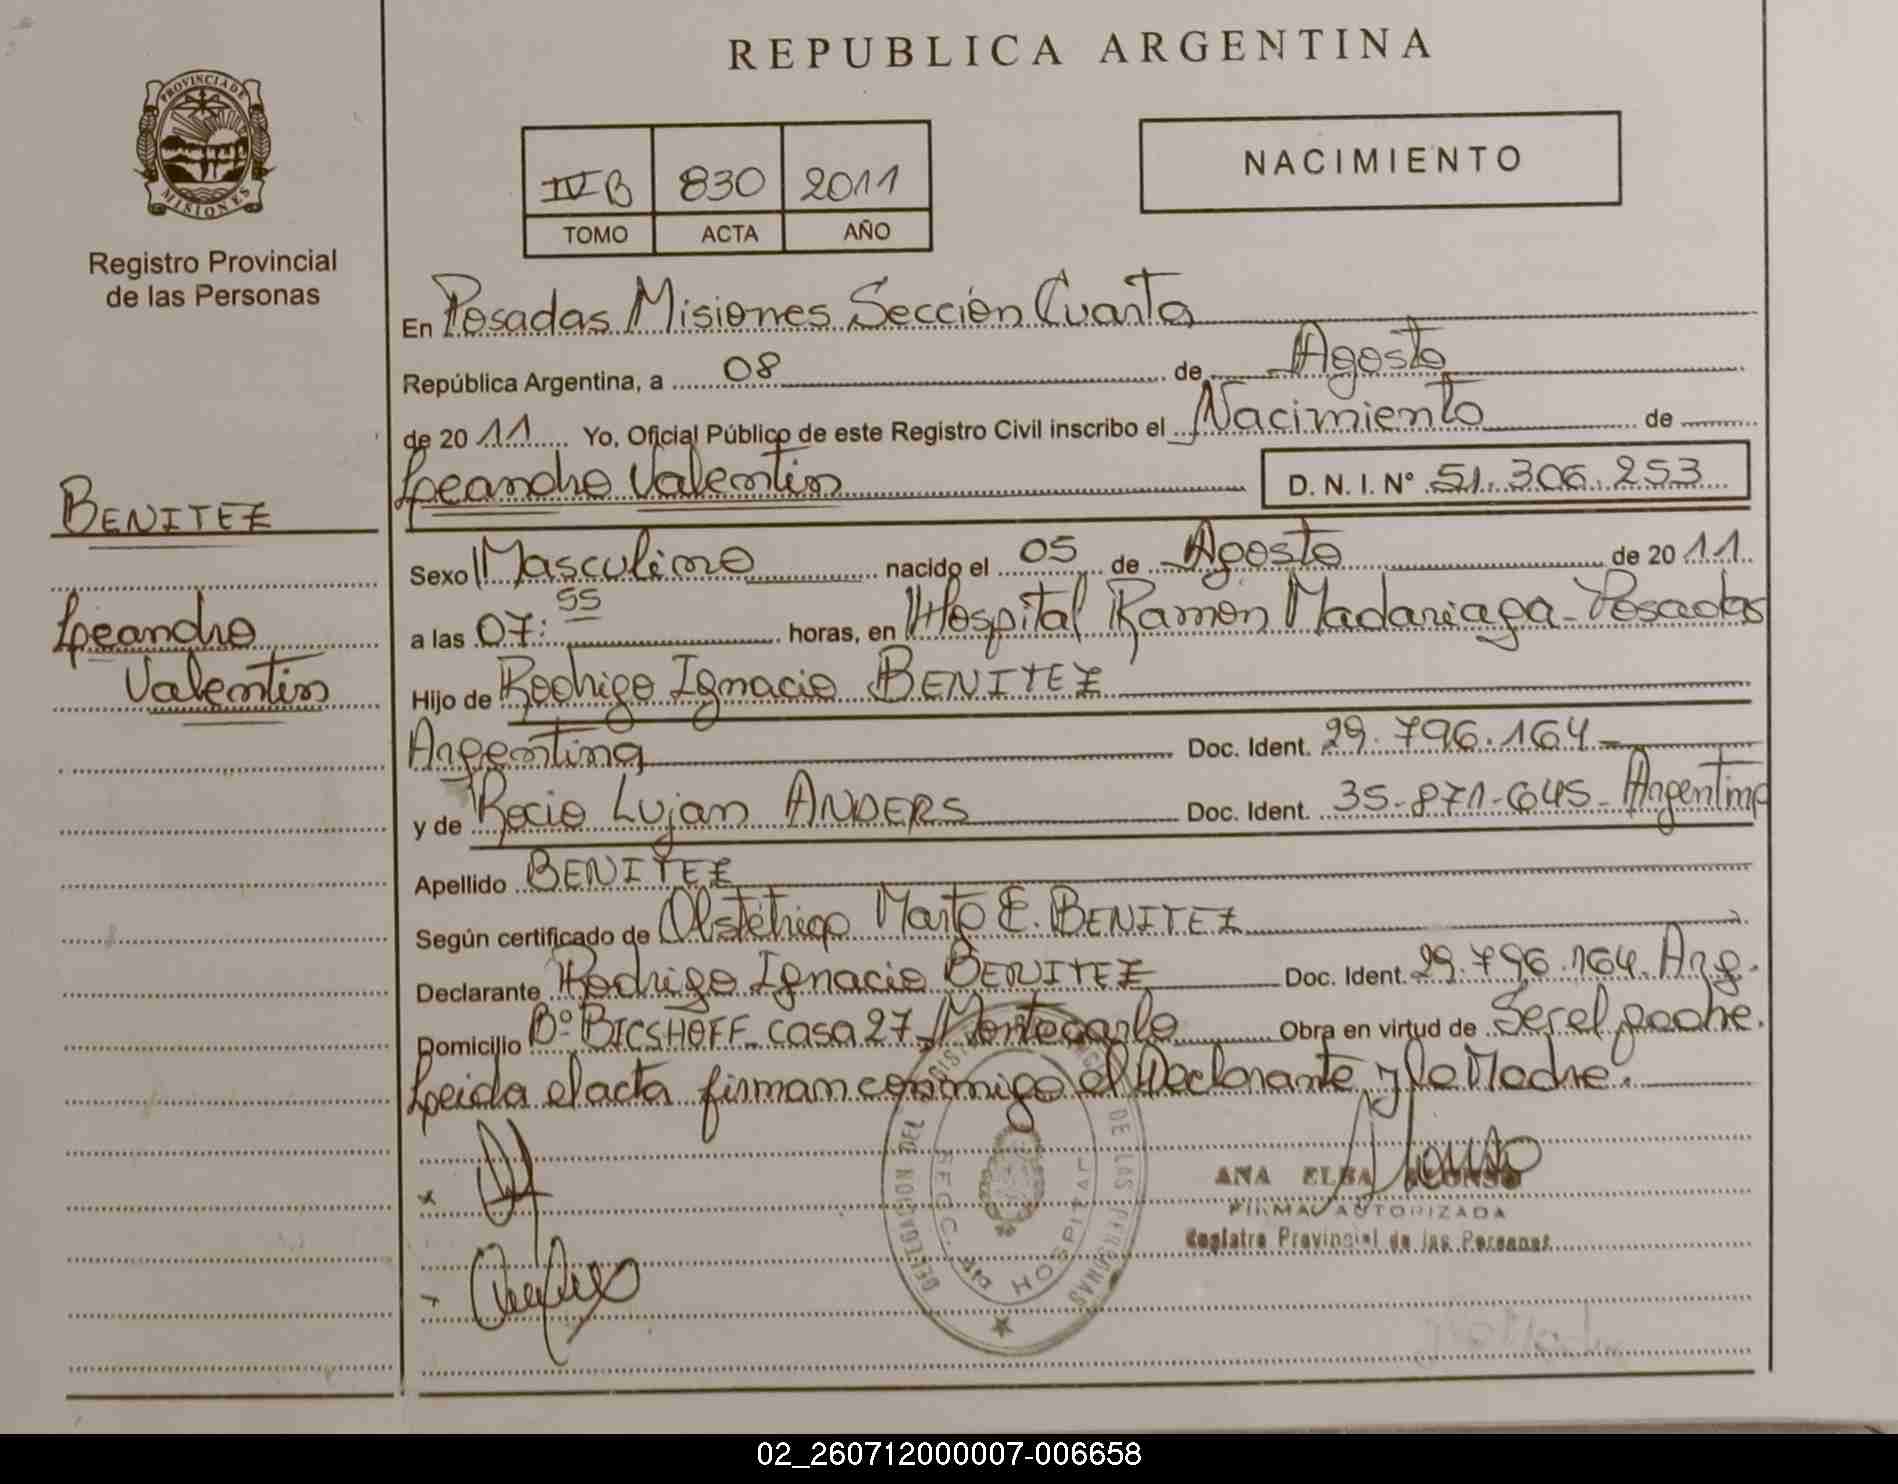 REPUBLICA ARGENTINA
PROVINCIA DE
MISIONES
Registro Provincial
de las Personas
IVB 830 2011
TOMO ACTA AÑO
NACIMIENTO
En Posadas Misiones Sección Cuarta
República Argentina, a 08 de Agosto
de 2011 Yo, Oficial Público de este Registro Civil inscribo el Nacimiento de
Leandro Valentin D. N. I. N° 51.306.253
BENITEZ
Leandro
Valentin
Sexo Masculino nacido el 05 de Agosto de 2011
a las 07:55 horas, en Hospital Ramón Madariaga - Posadas
Hijo de Rodrigo Ignacio BENITEZ
Argentina Doc. Ident. 29.796.164
y de Rocio Lujan ANDERS Doc. Ident. 35-871-645- Argentina
Apellido BENITEZ
Según certificado de Obstétrica Marta E. BENITEZ
Declarante Rodrigo Ignacio BENITEZ Doc. Ident. 29.796.164. Arg.
Domicilio B° BICSHOFF casa 27 Montecarlo Obra en virtud de Ser el padre.
Leida el acta firman conmigo el Declarante y la Madre.
DELEGACION DEL REGISTRO DE LAS PERSONAS
SECC. HOSPITAL
ANA ELBA ALONSO
FIRMA AUTORIZADA
Registro Provincial de las Personas
02_260712000007-006658